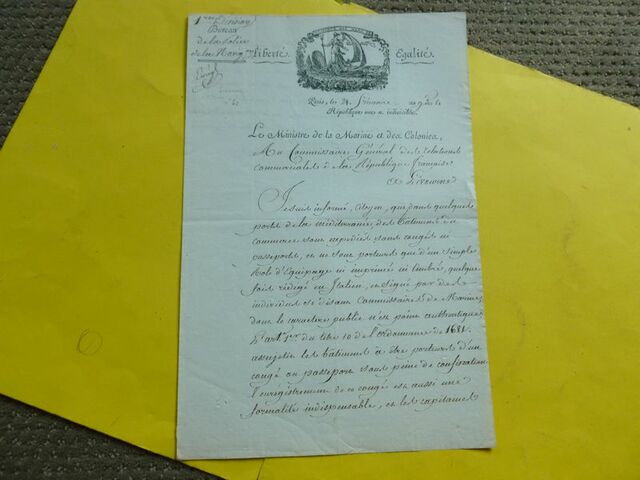 1ere Division
Bureau
de la Police
de la Navig.on
Liberté
Egalité
Paris, le 24 frimaire an 9 de la
République une et indivisible.
Le Ministre de la Marine et des Colonies,
Au Commissaire Général des relations
commerciales de la République française
à Livourne
Je suis informé, Citoyen, que dans quelques
ports de la méditerranée, des bâtimens du
commerce sont expédiés sans congés ni
passeports, et ne sont porteurs que d'un simple
Rôle d'Equipage ni imprimé ni timbré, quelque
fois rédigé en Italien, et signé par des
individus se disant Commissaires de Marine,
dont le caractère public n'est point authentique.
L'art. 1er du titre 10 de l'ordonnance de 1681.
assujetit les bâtimens à être porteurs d'un
congé ou passeport sous peine de confiscation
l'enregistrement de ce congé est aussi une
formalité indispensable, et les capitaines